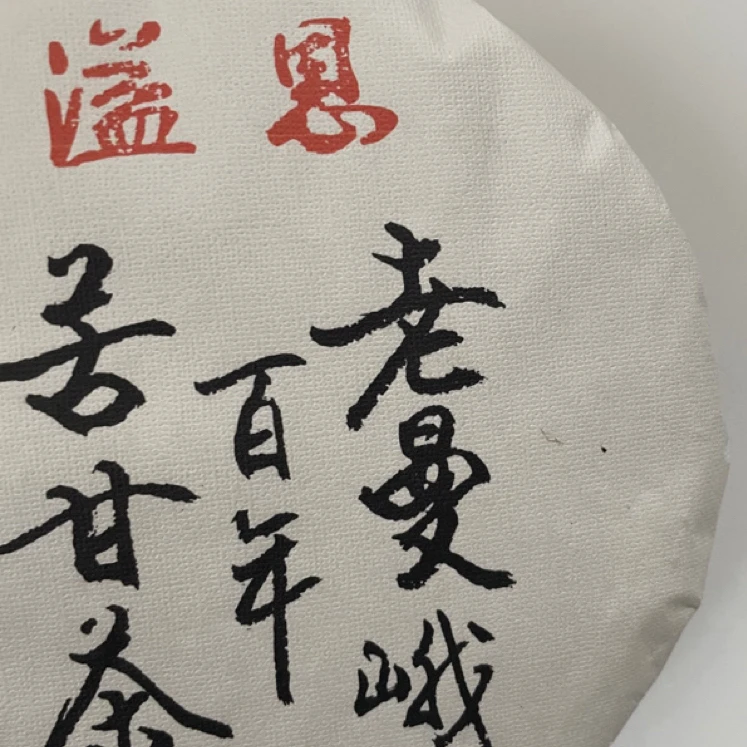 恩溢
老曼峨
百年
苦甘茶